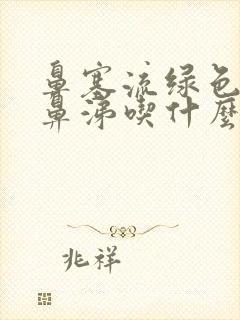 鼻塞流绿色
鼻涕喫什麽
兆祥